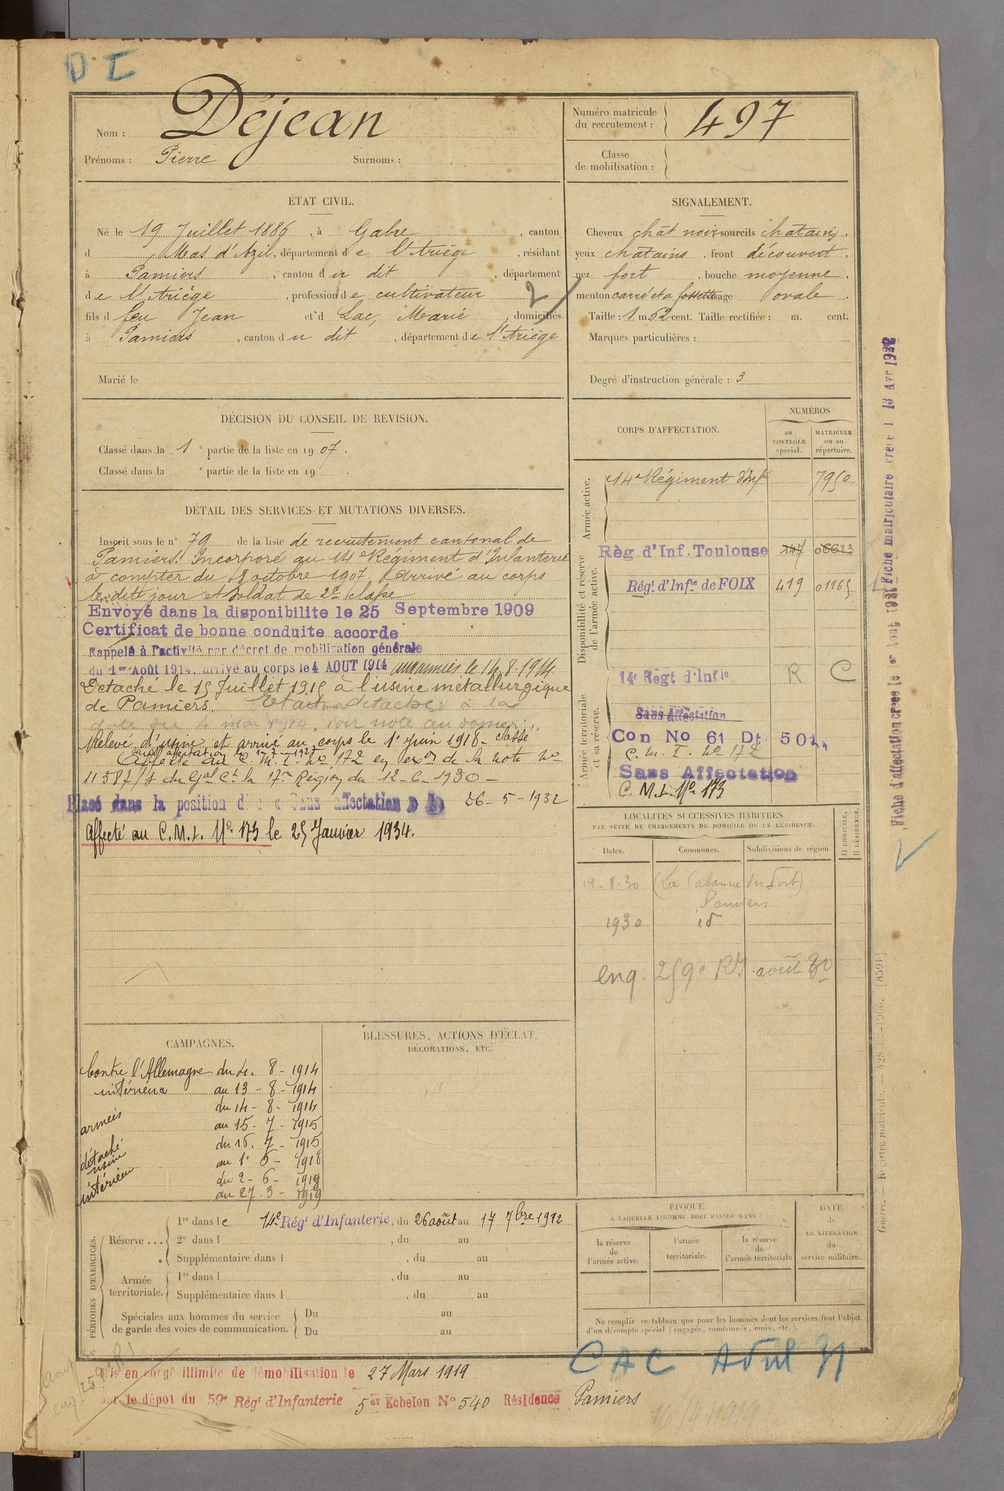 D I
Nom : Déjean
Prénoms : Pierre Surnoms :
Numéro matricule du recrutement : 497
Classe de mobilisation :
ÉTAT CIVIL.
Né le 19 Juillet 1886, à Gabre, canton
d Mas d'Azil, département de l'Ariège, résidant
à Pamiers, canton du dit, département
de l'Ariège, profession de cultivateur
fils d feu Jean et d Lac, Marie, domiciliés
à Pamiers, canton du dit, département de l'Ariège
2
Marié le
SIGNALEMENT.
Cheveux chât noir sourcils chatains.
yeux chatains, front découvert.
nez fort, bouche moyenne.
menton carré et à fossette visage ovale.
Taille : 1 m. 62 cent. Taille rectifiée : m. cent.
Marques particulières :
Degré d'instruction générale : 3
DÉCISION DU CONSEIL DE REVISION.
Classé dans la 1e partie de la liste en 1907.
Classé dans la e partie de la liste en 19 .
DÉTAIL DES SERVICES ET MUTATIONS DIVERSES.
Inscrit sous le n° 79 de la liste de recrutement cantonal de
Pamiers. Incorporé au 14e Régiment d'Infanterie
à compter du 8 octobre 1907. Arrivé au corps
le dit jour et soldat de 2e classe
Envoyé dans la disponibilite le 25 Septembre 1909
Certificat de bonne conduite accorde
Rappelé à l'activité par décret de mobilisation générale
du 1er Août 1914. arrivé au corps le 4 AOUT 1914 aux armées le 14.8.1914.
Détaché le 15 Juillet 1915 à l'usine métallurgique
de Pamiers.
Relevé d'usine et arrivé au corps le 1er Juin 1918. Passé
Affecté au C. M. I. No 172 en exon de la note No
11387/1 du Gal Ct la 17e Région du 12-6-1930
Placé dans la position dite « Sans affectation » 26-5-1932
Affecté au C.M.I. No 173 le 25 Janvier 1934.
CORPS D'AFFECTATION.
NUMÉROS
au CONTRÔLE spécial.
MATRICULE ou au répertoire.
Armée active.
14e Régiment d'Infie 7950
Disponibilité et réserve de l'armée active.
Règ. d'Inf. Toulouse 06623
Régt. d'Infie de FOIX 419 01165
Armée territoriale et sa réserve.
14e Regt d'Infie R C
Sans Affectation
Con No 61 Dt 501.
C. M. I. No 172
Sans Affectation
C. M. I. No 173
LOCALITÉS SUCCESSIVES HABITÉES
PAR SUITE DE CHANGEMENTS DE DOMICILE OU DE RÉSIDENCE.
Dates. Communes. Subdivisions de région.
D DOMICILE. R RÉSIDENCE.
19-8-30 (La Cabanne du Fort)
Pamiers
1930 id
enq. 259e RI août 30
CAMPAGNES.
Contre l'Allemagne du 4. 8 - 1914
intérieur au 13 - 8 - 1914
armées du 14 - 8 - 1914
au 15 - 7 - 1915
détaché usine du 16. 7 - 1915
au 1er 6 - 1918
intérieur du 2 - 6 - 1918
au 27 - 3 - 1919
BLESSURES, ACTIONS D'ÉCLAT,
DÉCORATIONS, ETC.
PÉRIODES D'EXERCICES.
Réserve ... 1re dans le 14e Régt d'Infanterie, du 26 août au 17 7bre 1912
2e dans l , du au
Supplémentaire dans l , du au
Armée territoriale. 1re dans l , du au
Supplémentaire dans l , du au
Spéciales aux hommes du service de garde des voies de communication. Du au
Du au
ÉPOQUE
A LAQUELLE L'HOMME DOIT PASSER DANS
la réserve de l'armée active.
l'armée territoriale.
la réserve de l'armée territoriale
DATE de LA LIBÉRATION du service militaire.
Ne remplir ce tableau que pour les hommes dont les services font l'objet
d'un décompte spécial (engagés, condamnés, omis, etc.).
Mis en congé illimité de démobilisation le 27 Mars 1919
par le dépôt du 59e Régt d'Infanterie 5er Echelon No 540 Résidence Pamiers
CAC Avril 31